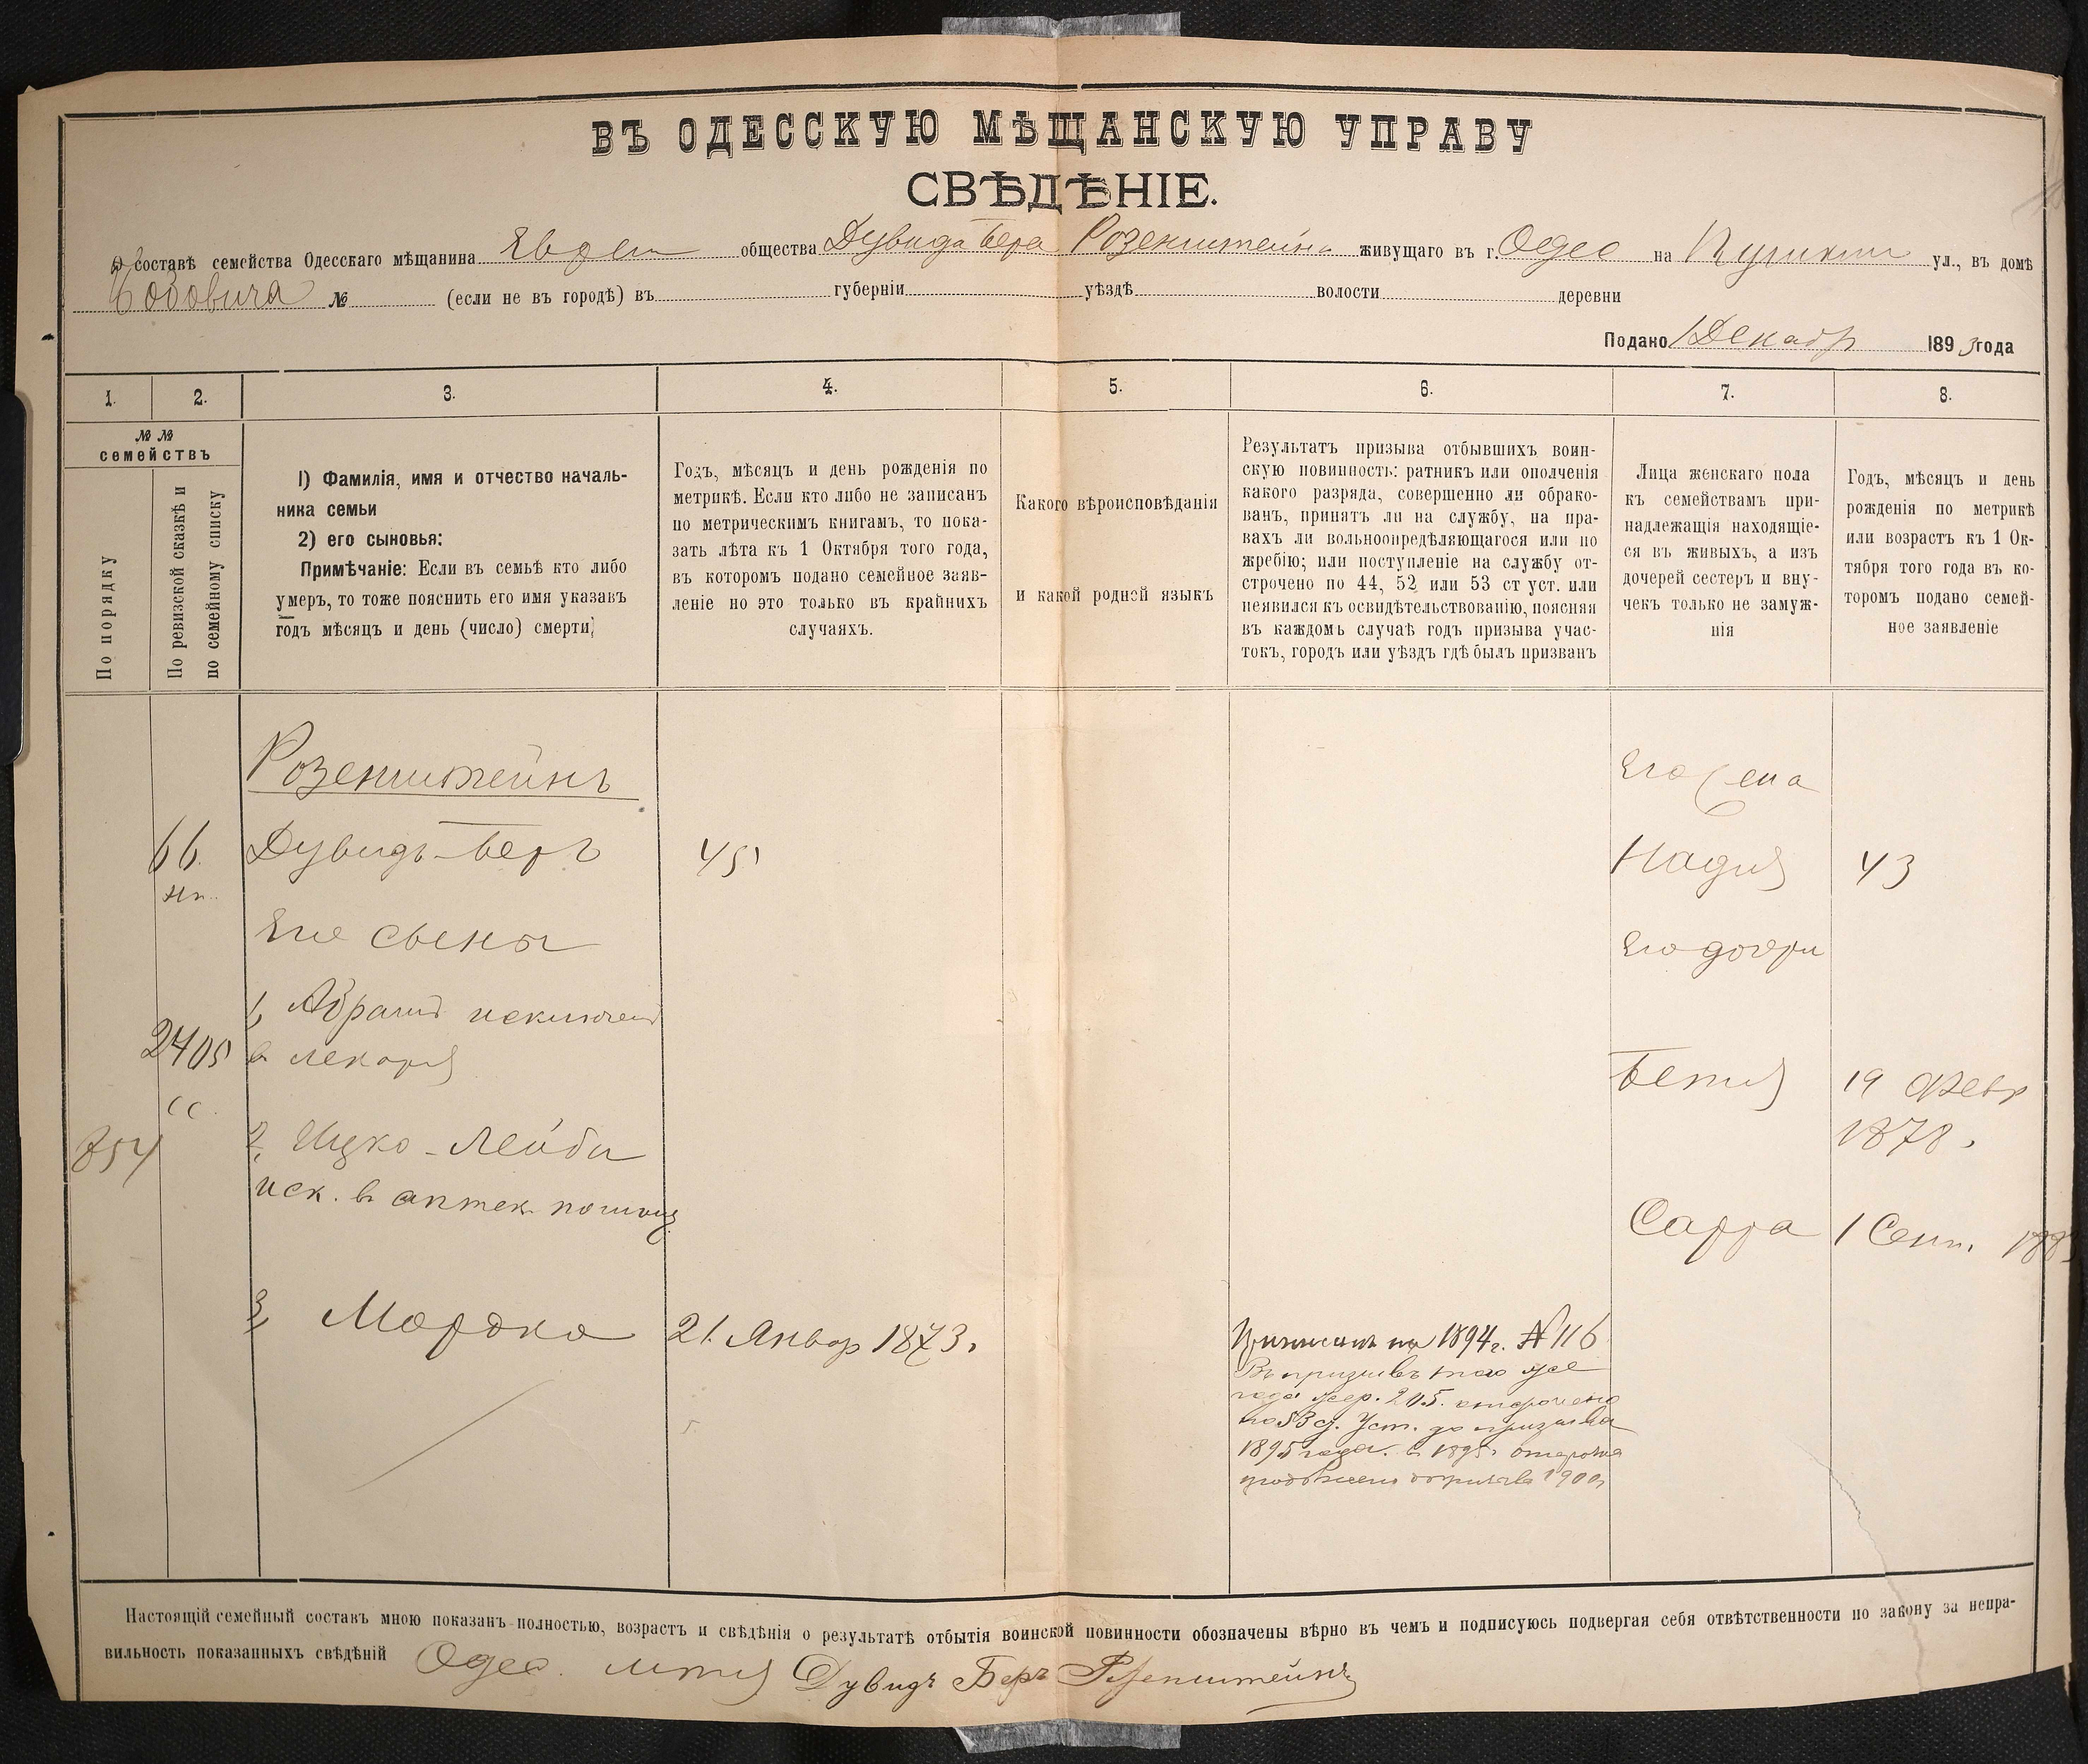 ВЪ ОДЕССКУЮ МѢЩАНСКУЮ УПРАВУ
СВѢДѢНІЕ.
О составѣ семейства Одесскаго мѣщанина Еврей общества Дувида Бера Розенштейна живущаго въ г. Одес на Пушкин ул., въ домѣ
№ (если не въ городѣ) въ губерніи уѣздѣ волости деревни
Подано 1 Декабр 1893 года
1. 2. 3. 4. 5. 6. 7. 8.
№ №
семействъ
По порядку
По ревизской сказкѣ и
по семейному списку
1) Фамилія, имя и отчество началь-
ника семьи
2) его сыновья:
Примѣчаніе: Если въ семьѣ кто либо
умеръ, то тоже пояснить его имя указавъ
годъ мѣсяцъ и день (число) смерти;
Годъ, мѣсяцъ и день рожденія по
метрикѣ. Если кто либо не записанъ
по метрическимъ книгамъ, то пока-
зать лѣта къ 1 Октября того года,
въ которомъ подано семейное заяв-
леніе но это только въ крайнихъ
случаяхъ.
Какого вѣроисповѣданія
и какой родной языкъ
Результатъ призыва отбывшихъ воин-
скую повинность: ратникъ или ополченія
какого разряда, совершенно ли обрако-
ванъ, принятъ ли на службу, на пра-
вахъ ли вольноопредѣляющагося или по
жребію; или поступленіе на службу от-
строчено по 44, 52 или 53 ст уст. или
неявился къ освидѣтельствованію, поясняя
въ каждомъ случаѣ годъ призыва учас-
токъ, городъ или уѣздъ гдѣ былъ призванъ
Лица женскаго пола
къ семействамъ при-
надлежащія находящіе-
ся въ живыхъ, а изъ
дочерей сестеръ и вну-
чекъ только не замуж-
нія
Годъ, мѣсяцъ и день
рожденія по метрикѣ
или возрастъ къ 1 Ок-
тября того года въ ко-
торомъ подано семей-
ное заявленіе
Розенштейнъ
Его жена
66. Дувидъ-Беръ 45 Надия 43
Его сыны
Его дочери
1, Абрамъ исключен
2405 в лекаря
Бетия 19 Февр
1878.
854 2, Ицко-Лейби
иск. в аптек. помощ.
Сарра 1 Сент.
3, Мордко 21 Январ 1873.
Приписанъ на 1894 г. № 116
Въ призывъ того же
года жер. 205. отсрочено
по 53 ст. Уст. до призыва
1895 года. в 1895 отсрочка
продолжена до призыва 1900
Настоящій семейный составъ мною показанъ полностью, возрастъ и свѣдѣнія о результатѣ отбытія воинской повинности обозначены вѣрно въ чемъ и подписуюсь подвергая себя отвѣтственности по закону за непра-
вильность показанныхъ свѣдѣній Одес. Дувидъ Беръ Розенштейнъ